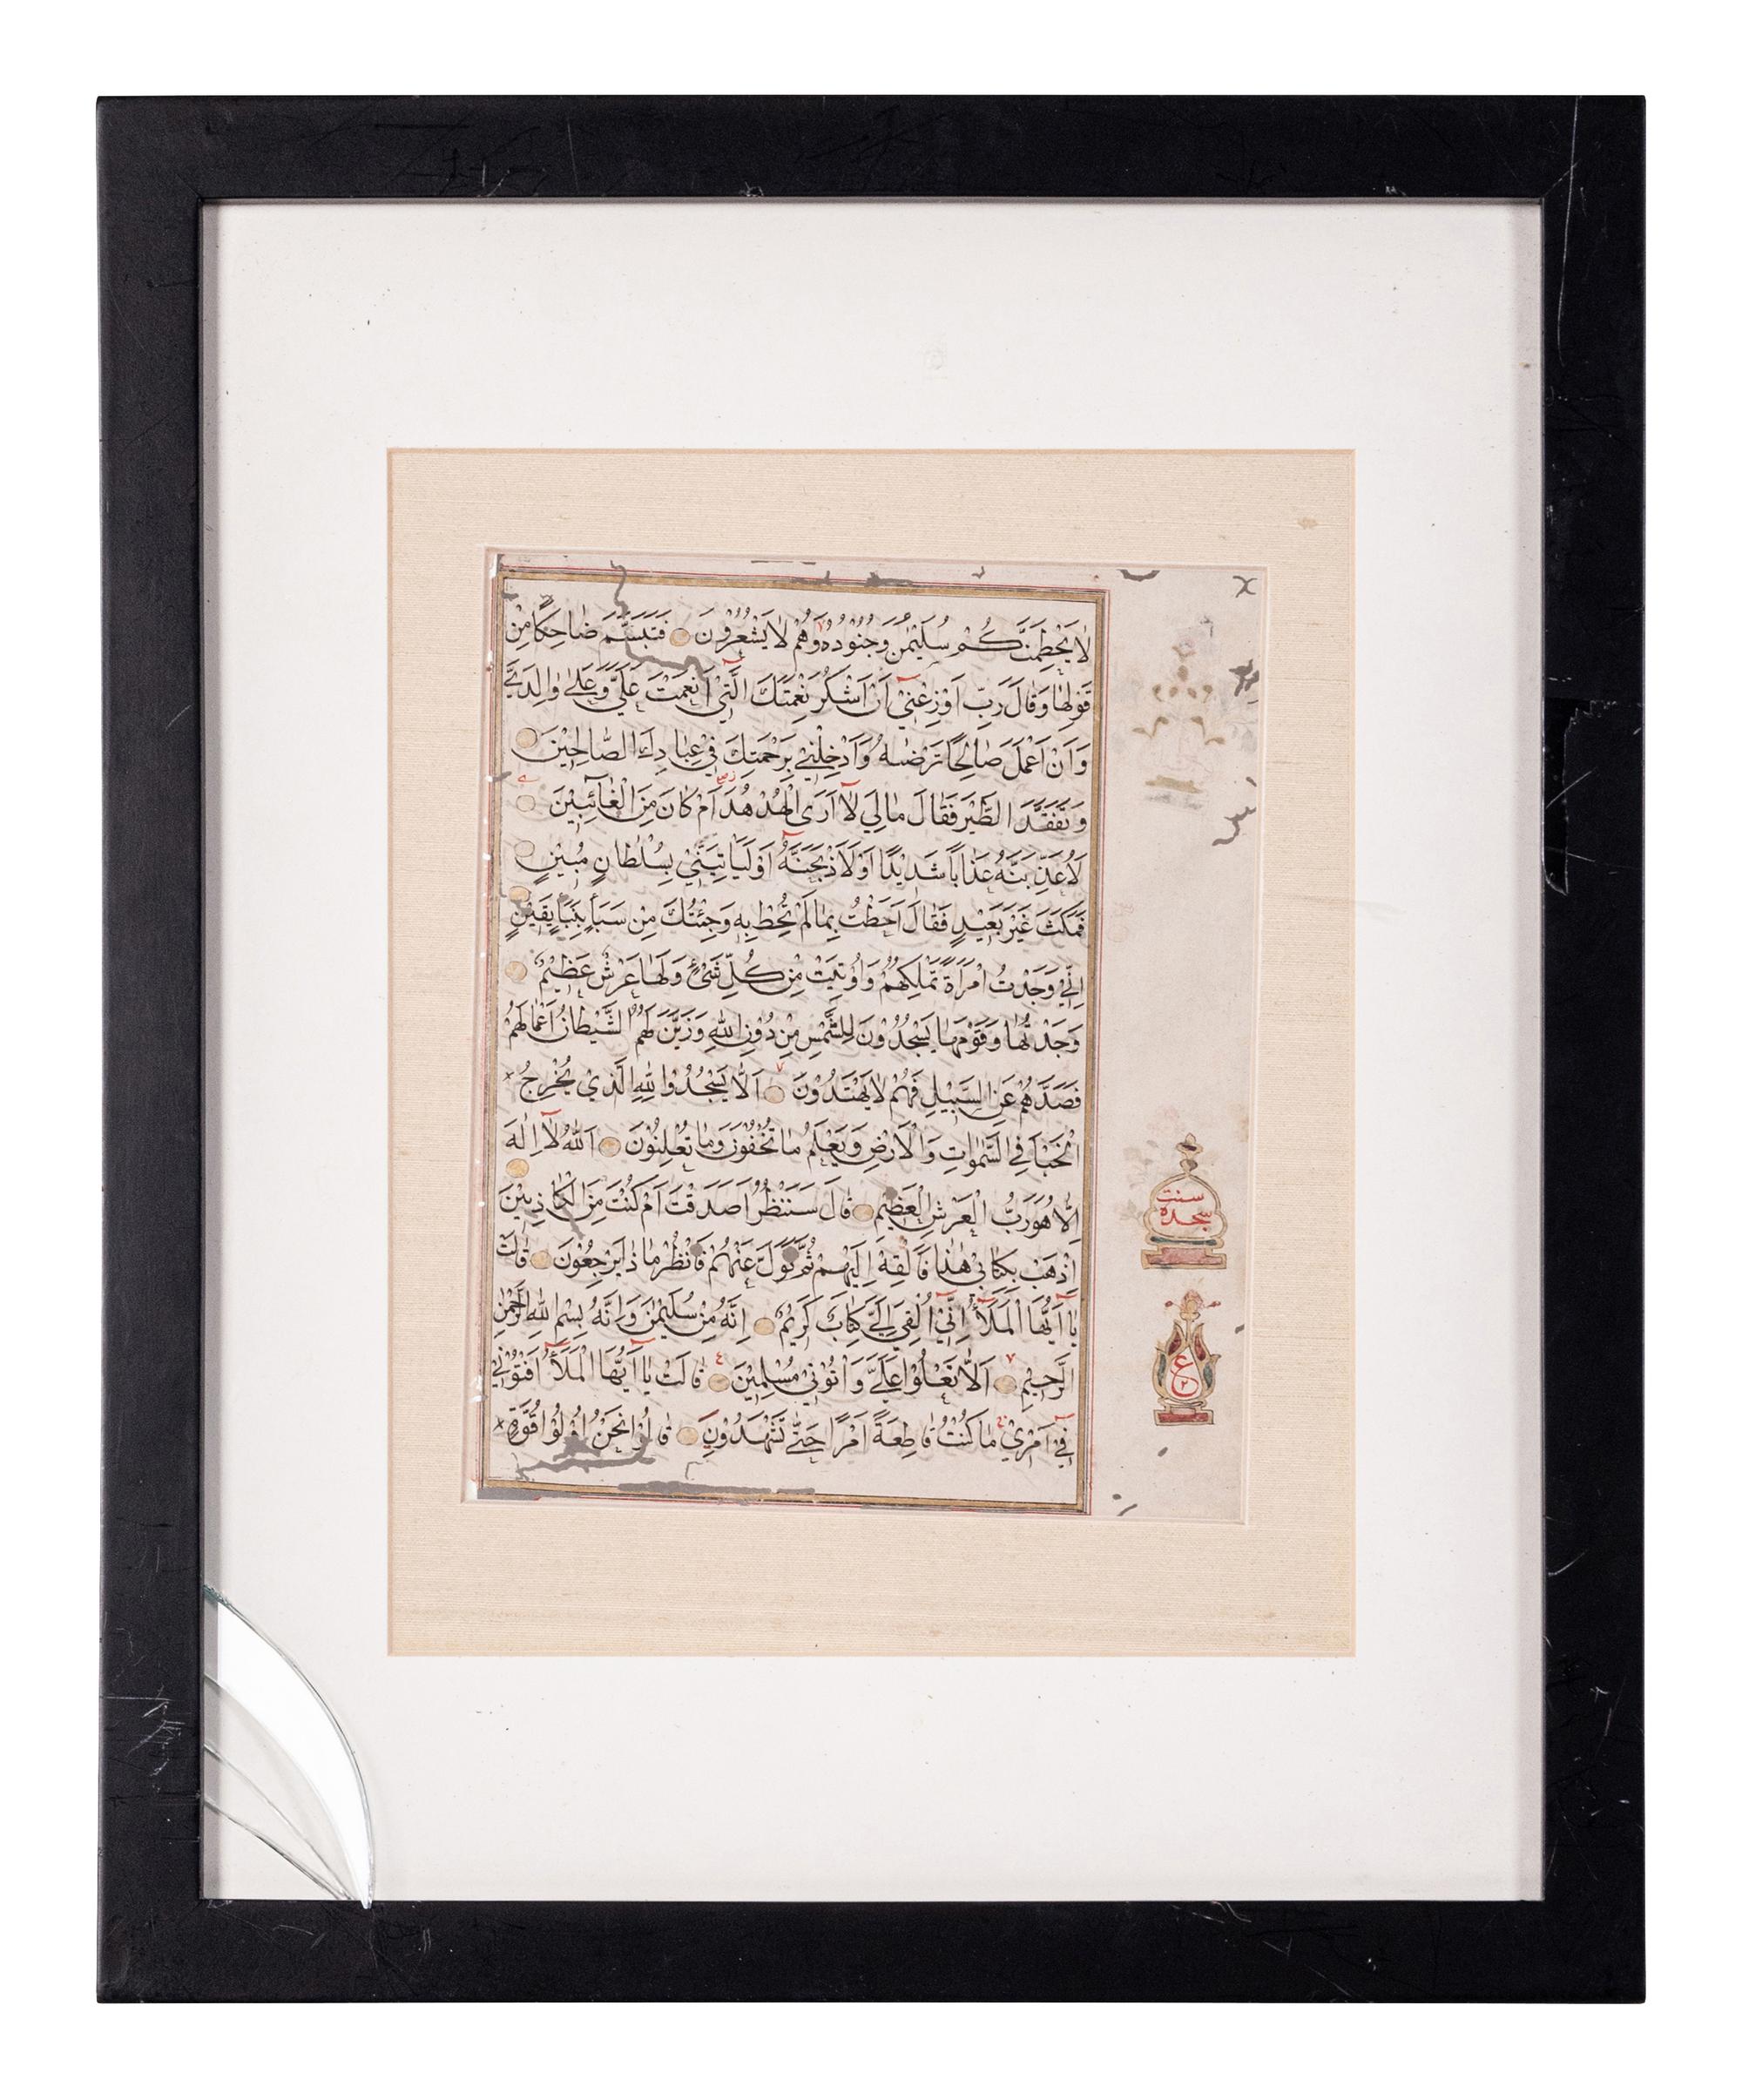 لَا يَحْطِمَنَّكُمْ سُلَيْمٰنُ وَجُنُوْدُهُ وَهُمْ لَا يَشْعُرُوْنَ فَتَبَسَّمَ ضَاحِكًا مِنْ
قَوْلِهَا وَقَالَ رَبِّ اَوْزِعْنِيْ اَنْ اَشْكُرَ نِعْمَتَكَ الَّتِيْ اَنْعَمْتَ عَلَيَّ وَعَلٰى وَالِدَيَّ
وَاَنْ اَعْمَلَ صَالِحًا تَرْضٰىهُ وَاَدْخِلْنِيْ بِرَحْمَتِكَ فِيْ عِبَادِكَ الصَّالِحِيْنَ
وَتَفَقَّدَ الطَّيْرَ فَقَالَ مَا لِيَ لَا اَرَى الْهُدْهُدَ اَمْ كَانَ مِنَ الْغَائِبِيْنَ
لَاُعَذِّبَنَّهُ عَذَابًا شَدِيْدًا اَوْ لَاَذْبَحَنَّهُ اَوْ لَيَاْتِيَنِّيْ بِسُلْطَانٍ مُبِيْنٍ
فَمَكَثَ غَيْرَ بَعِيْدٍ فَقَالَ اَحَطْتُ بِمَا لَمْ تُحِطْ بِهِ وَجِئْتُكَ مِنْ سَبَأٍ بِنَبَأٍ يَقِيْنٍ
اِنِّيْ وَجَدْتُ امْرَاَةً تَمْلِكُهُمْ وَاُوْتِيَتْ مِنْ كُلِّ شَيْءٍ وَلَهَا عَرْشٌ عَظِيْمٌ
وَجَدْتُهَا وَقَوْمَهَا يَسْجُدُوْنَ لِلشَّمْسِ مِنْ دُوْنِ اللهِ وَزَيَّنَ لَهُمُ الشَّيْطَانُ اَعْمَالَهُمْ
فَصَدَّهُمْ عَنِ السَّبِيْلِ فَهُمْ لَا يَهْتَدُوْنَ اَلَّا يَسْجُدُوْا لِلّٰهِ الَّذِيْ يُخْرِجُ
الْخَبْاَ فِي السَّمٰوَاتِ وَالْاَرْضِ وَيَعْلَمُ مَا تُخْفُوْنَ وَمَا تُعْلِنُوْنَ اَللّٰهُ لَا اِلٰهَ
اِلَّا هُوَ رَبُّ الْعَرْشِ الْعَظِيْمِ قَالَ سَنَنْظُرُ اَصَدَقْتَ اَمْ كُنْتَ مِنَ الْكَاذِبِيْنَ
اِذْهَبْ بِكِتَابِيْ هٰذَا فَاَلْقِهْ اِلَيْهِمْ ثُمَّ تَوَلَّ عَنْهُمْ فَانْظُرْ مَاذَا يَرْجِعُوْنَ قَالَتْ
يَا اَيُّهَا الْمَلَأُ اِنِّيْ اُلْقِيَ اِلَيَّ كِتَابٌ كَرِيْمٌ اِنَّهُ مِنْ سُلَيْمٰنَ وَاِنَّهُ بِسْمِ اللهِ الرَّحْمٰنِ
الرَّحِيْمِ اَلَّا تَعْلُوْا عَلَيَّ وَاْتُوْنِيْ مُسْلِمِيْنَ قَالَتْ يَا اَيُّهَا الْمَلَأُ اَفْتُوْنِيْ
فِيْ اَمْرِيْ مَا كُنْتُ قَاطِعَةً اَمْرًا حَتّٰى تَشْهَدُوْنِ قَالُوْا نَحْنُ اُولُوْا قُوَّةٍ
سنت
سجده
ع
٢